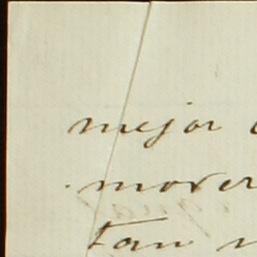 mejor
mover
tan